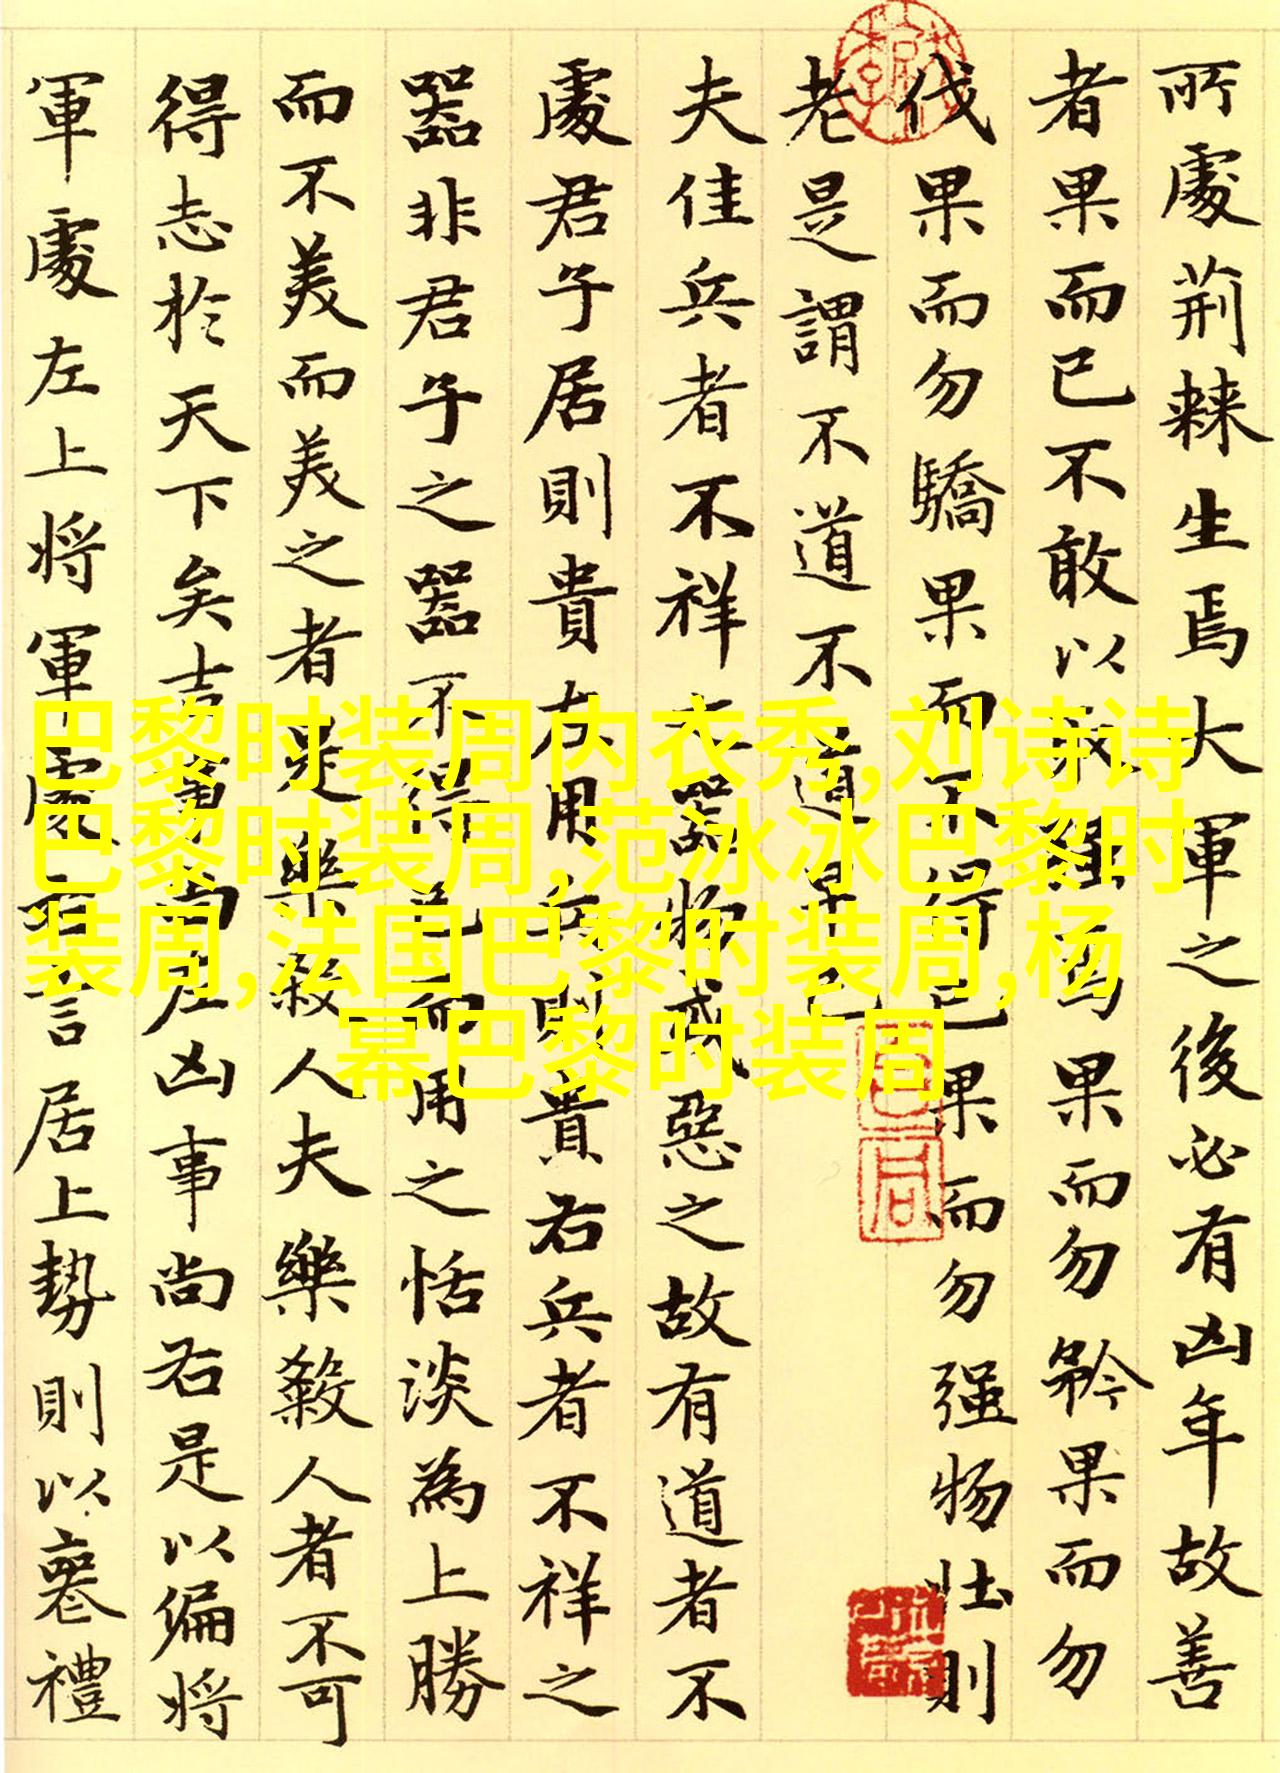 所處荊棘生焉大軍之後必有凶年故善
者果而已不敢以取強焉果而勿矜果而勿
伐果而勿驕果而不得已果而勿强物壯則
老是謂不道不道早已
夫佳兵者不祥之器物或惡之故有道者不
處君子居則貴左用兵則貴右兵者不祥之
器非君子之器不得已而用之恬淡為上勝
而不美而美之者是樂殺人夫樂殺人者不可
得志於天下矣吉事尚左凶事尚右是以偏將
軍處左上將軍處右言居上勢則以喪禮
巴黎时装周内衣秀,刘诗诗
巴黎时装周,范冰冰巴黎时
装周,法国巴黎时装周,杨
幂巴黎时装周